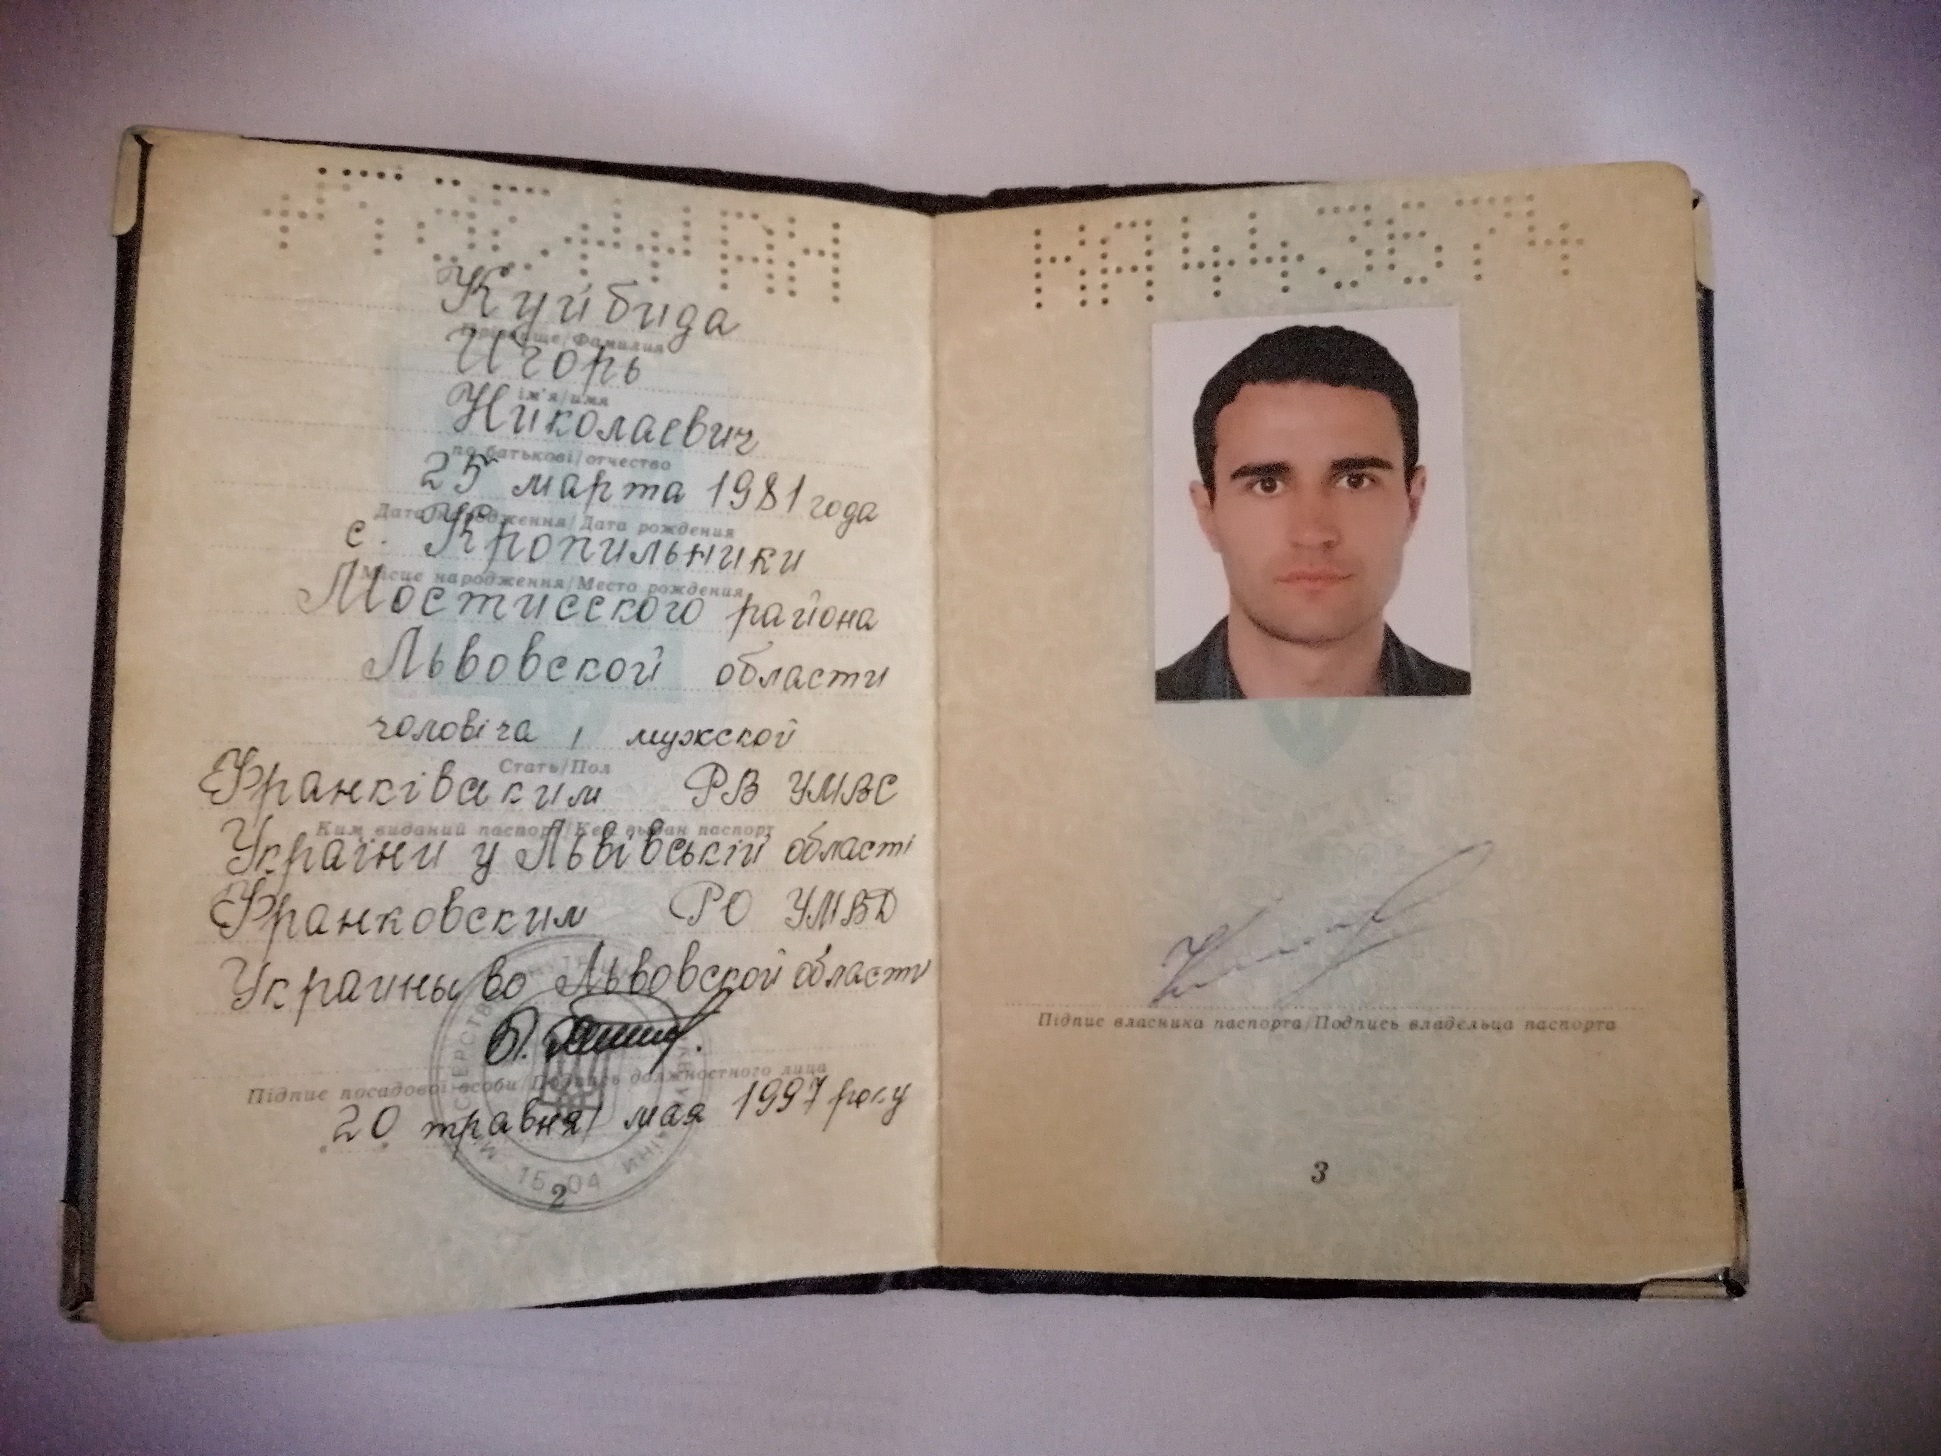 КА443674
Куйбида
Прізвище/Фамилия
Игорь
ім'я/имя
Николаевич
по батькові/отчество
25 марта 1981 года
Дата народження/Дата рождения
с. Кропильники
Місце народження/Место рождения
Мостисского района
Львовской области
чоловіча / мужской
Стать/Пол
Франківським РВ УМВС
Ким виданий паспорт/Кем выдан паспорт
України у Львівській області
Франковским РО УМВД
Украины во Львовской области
Підпис посадової особи/Подпись должностного лица
20 травня/мая 1997 року
15 04
2
КА443674
Підпис власника паспорта/Подпись владельца паспорта
3